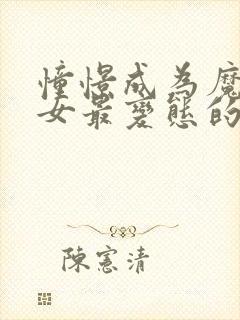 憧憬成为魔
女最变態的
陳憲清